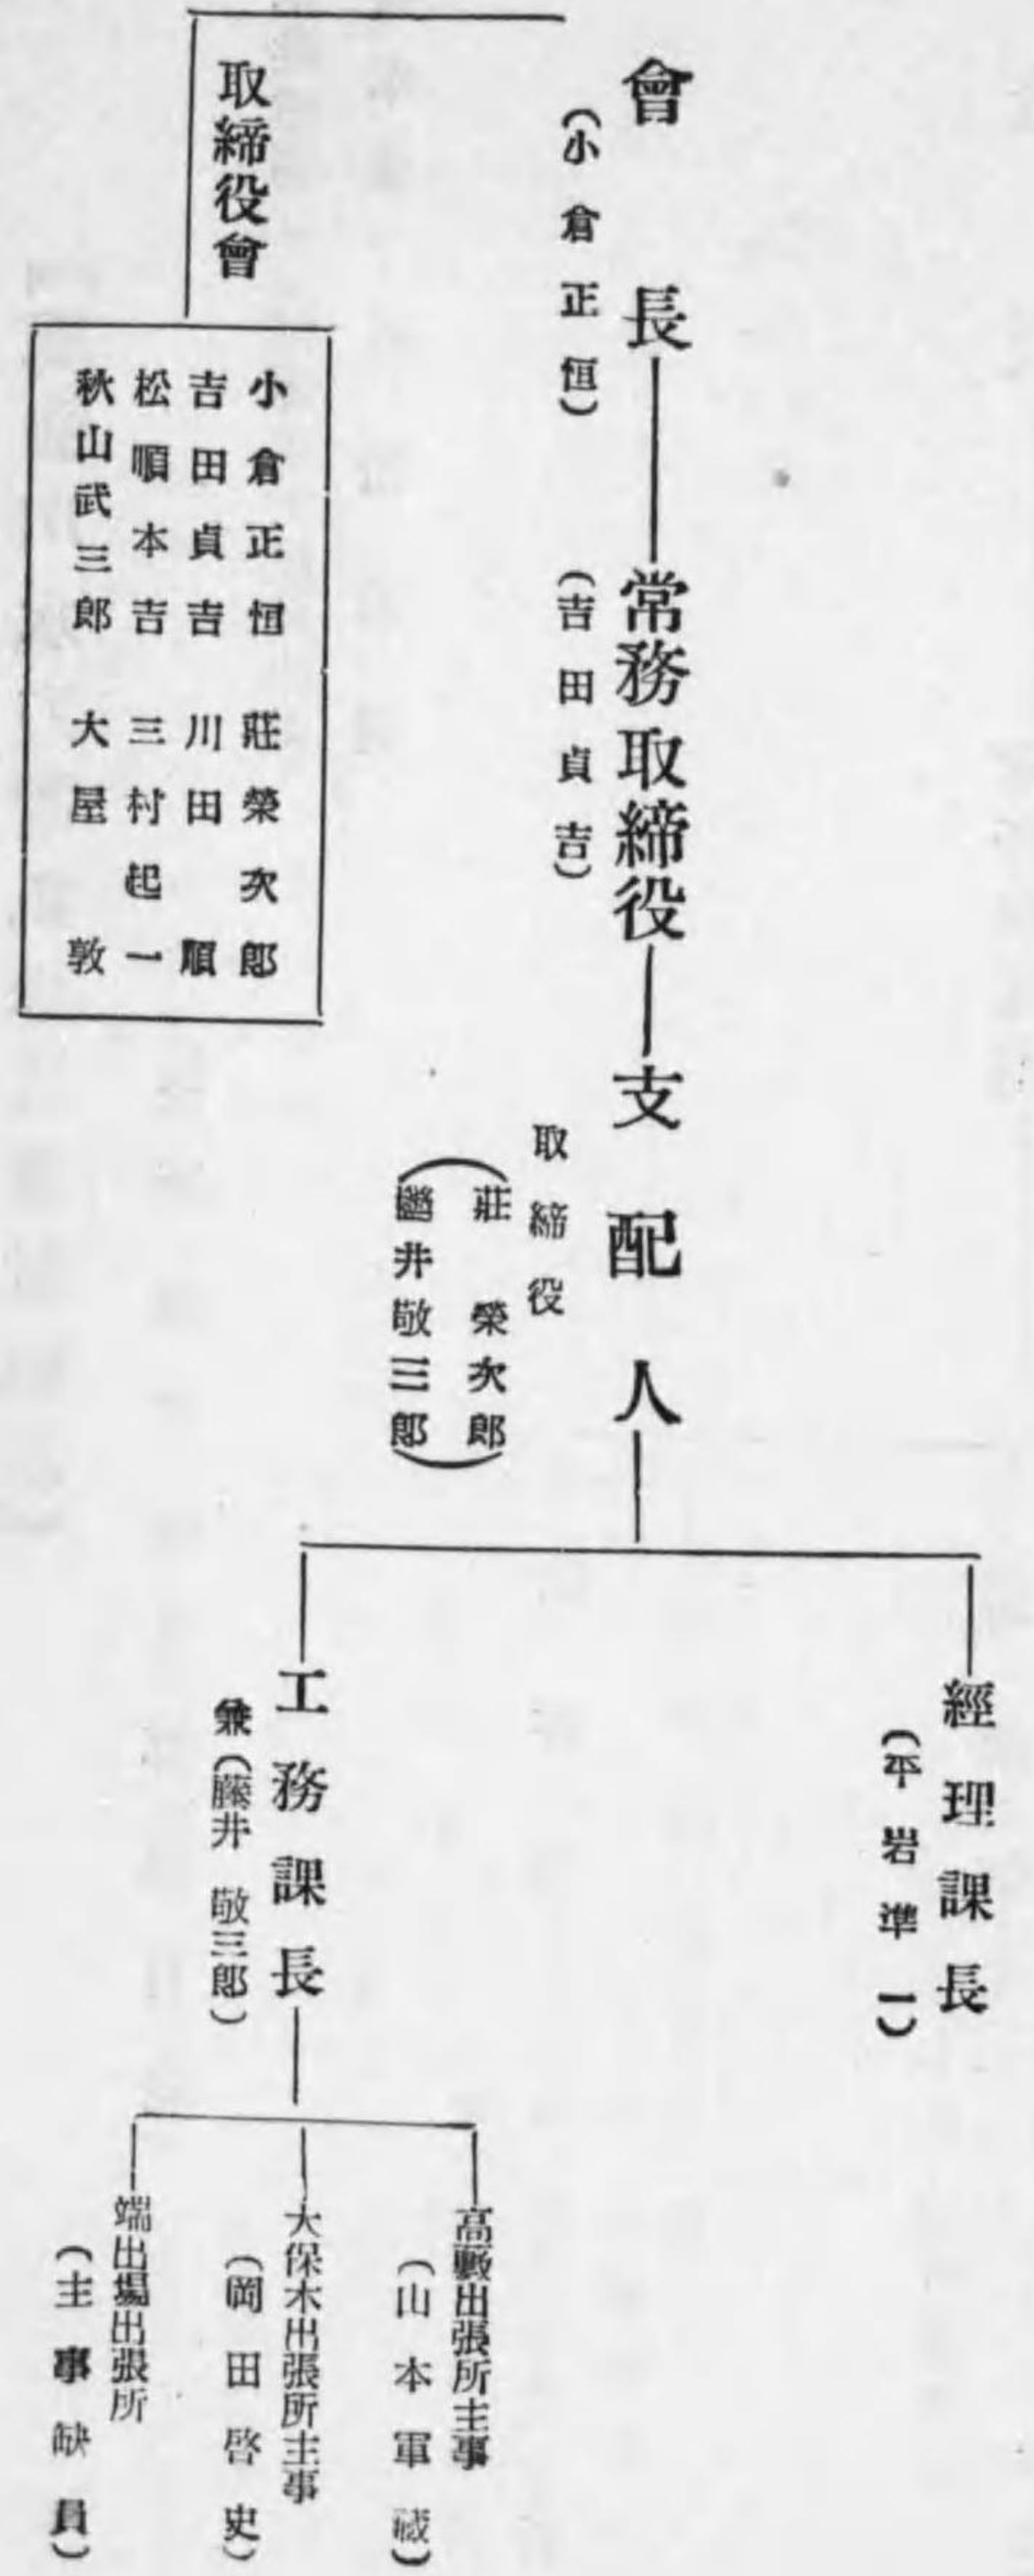 會長
(小倉正恒)
常務取締役
(吉田貞吉)
支配人
取締役
(莊榮次郎
井敬三郎)
經理課長
(平岩準一)
工務課長
兼(藤井敬三郎)
高藪出張所主事
(山本軍藏)
大保木出張所主事
(岡田啓史)
端出場出張所
(主事缺員)
取締役會
小倉正恒 莊榮次郎
吉田貞吉 川田順
松順本吉 三村起一
秋山武三郎 大屋敦